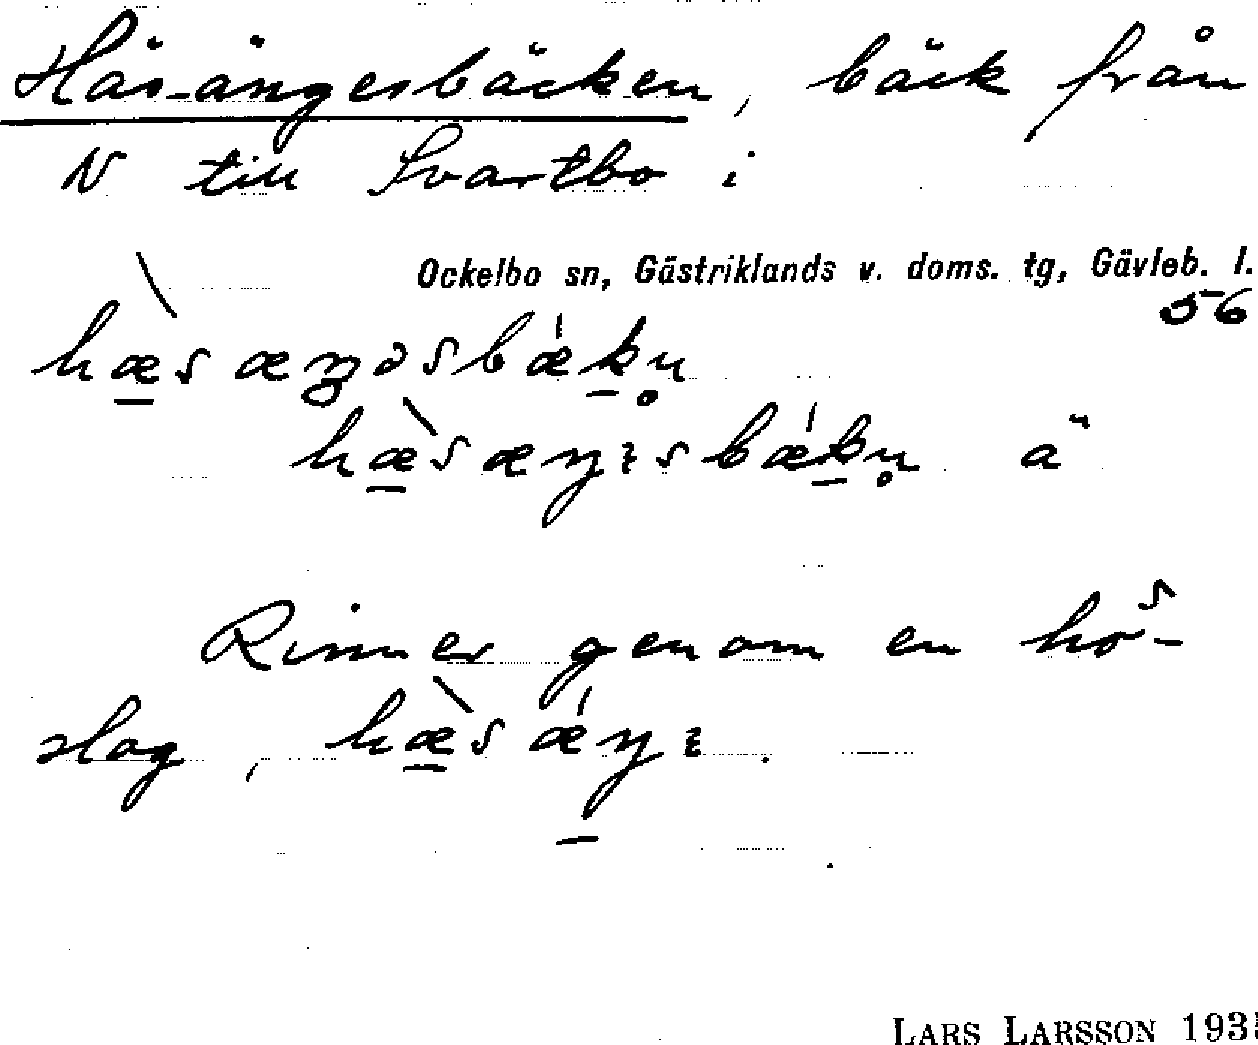 Häs-ängesbäcken, bäck från
N till Svartbo i
Ockelbo sn, Gästriklands v. doms. tg, Gävleb. l.
56
hæ̀s æŋəsbǽkn̥
hæ̀sæŋɩsbǽkn̥ ä
Rinner genom en hö-
slog, hæ̀sǽŋɩ.
LARS LARSSON 193